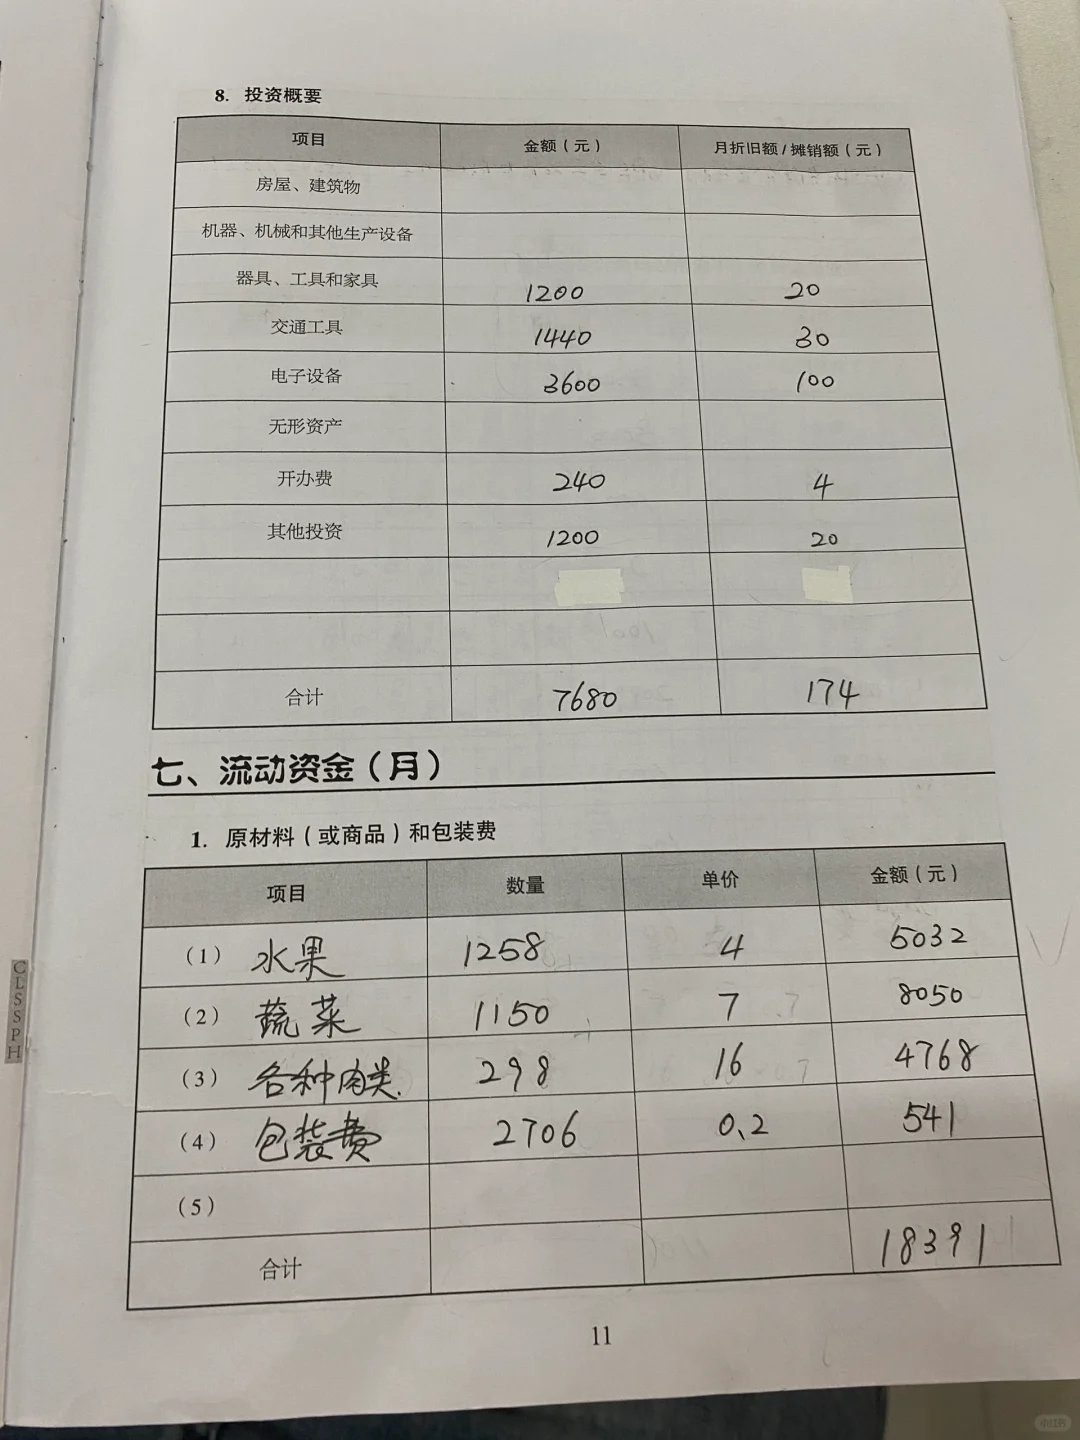 8. 投资概要
项目 金额（元） 月折旧额/摊销额（元）
房屋、建筑物
机器、机械和其他生产设备
器具、工具和家具 1200 20
交通工具 1440 30
电子设备 3600 100
无形资产
开办费 240 4
其他投资 1200 20
合计 7680 174
七、流动资金（月）
1. 原材料（或商品）和包装费
项目 数量 单价 金额（元）
（1）水果 1258 4 5032
（2）蔬菜 1150 7 8050
（3）各种肉类. 298 16 4768
（4）包装费 2706 0、2 541
（5）
合计 18391
11
CLSSPH
小红书